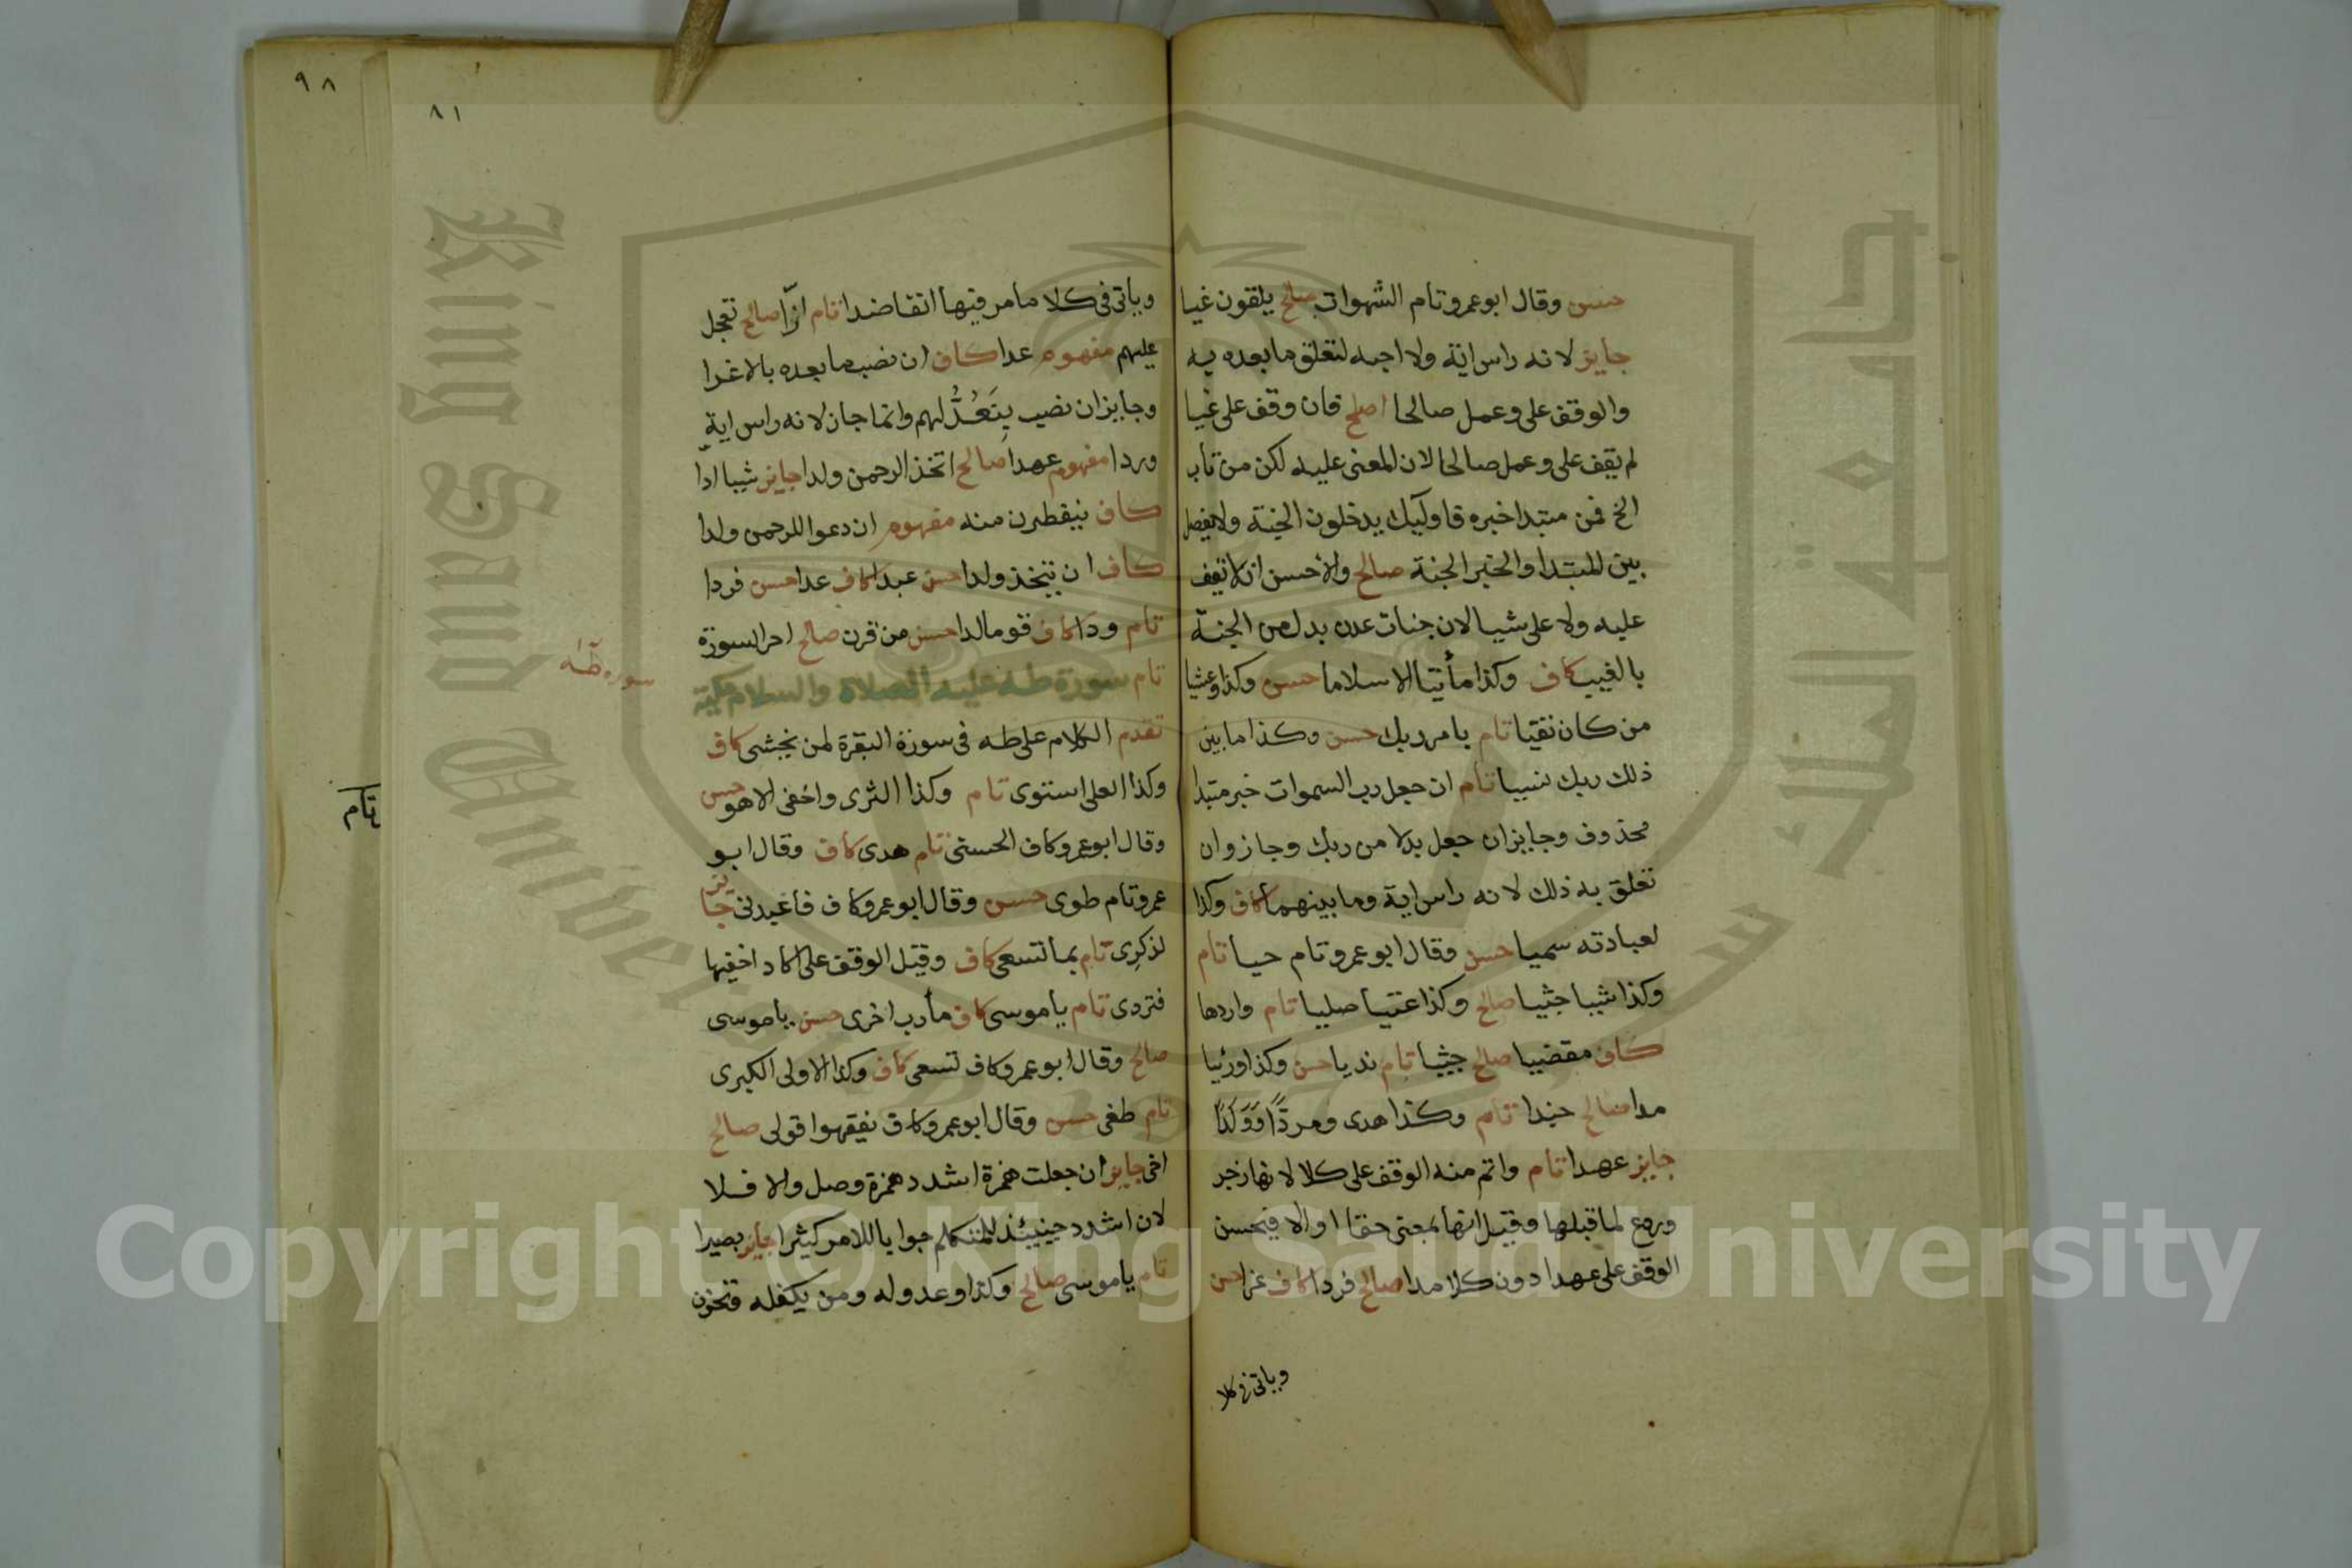 حسن وقال ابو عمرو تام الشهوات صالح يلقون غيا
جايز لانه راس اية ولا احبه لتعلق ما بعده به
والوقف على وعمل صالحا اصلح فان وقف على غيا
لم يقف على وعمل صالحا لان المعنى عليه لكن من تاب
الخ فمن مبتدا خبره فاوليك يدخلون الجنة ولا يفصل
بين المبتدا والخبر الجنة صالح والاحسن ان لا تقف
عليه ولا على شيا لان جنات عدن بدل من الجنة
بالغيب كاف وكذا مأتيا الا سلاما حسن وكذا وعشيا
من كان تقيا تام بامر ربك حسن وكذا ما بين
ذلك ربك نسيا تام ان جعل رب السموات خبر مبتدا
محذوف وجايز ان جعل بدلا من ربك وجاز وان
تعلق به ذلك لانه راس اية وما بينهما كاف وكذا
لعبادته سميا حسن وقال ابو عمرو تام حيا تام
وكذا شيا جثيا صالح وكذا عتيا صليا تام واردها
كاف مقضيا صالح جثيا تام نديا حسن وكذا ورئيا
مدا صالح جندا تام وكذا هدى ومردًّا وَوَلَدًا
جايز عهدا تام واتم منه الوقف على كلا لانها زجر
وردع لما قبلها وقيل انها بمعنى حقا او الا فيحسن
الوقف على عهدا دون كلا مدا صالح فردا كاف عزا حسن
وياتي في كلا
٩٨
٨١
وياتي في كلا ما مر فيها انفا ضدا تام ازّا صالح تعجل
عليهم مفهوم عدا كاف ان نصب ما بعده بالاغرا
وجايز ان نصب بِنَعُدُّ لهم وانما جاز لانه راس اية
وردا مفهوم عهدا صالح اتخذ الرحمن ولدا جايز شيا ادّا
كاف ينفطرن منه مفهوم ان دعوا للرحمن ولدا
كاف ان يتخذ ولدا حسن عبدا كاف عدا حسن فردا
تام ودا كاف قوما لدا حسن من قرن صالح اخر السورة
تام سورة طه عليه الصلاة والسلام مكية
سورة طه
تقدم الكلام على طه في سورة البقرة لمن يخشى كاف
وكذا العلى استوى تام وكذا الثرى واخفى الا هو حسن
وقال ابو عمرو كاف الحسنى تام هدى كاف وقال ابو
عمرو تام طوى حسن وقال ابو عمرو كاف فاعبدني جايز
لذكرى تام بما تسعى كاف وقيل الوقف على اكاد اخفيها
فتردى تام ياموسى كاف مأرب اخرى حسن ياموسى
صالح وقال ابو عمرو كاف تسعى كاف وكذا الاولى الكبرى
تام طغى حسن وقال ابو عمرو كاف يفقهوا قولى صالح
اخى جايز ان جعلت همزة اشدد همزة وصل والا فلا
لان اشدد حينيئذ للمتكلم جوابا للامر كثيرا جايز بصيرا
تام ياموسى صالح وكذا وعدو له ومن يكفله وتحزن
تام